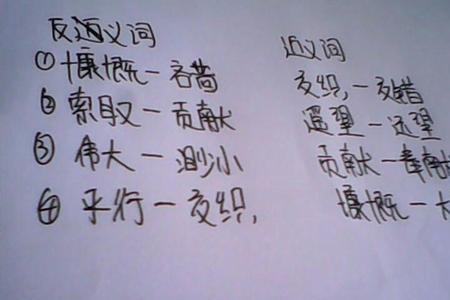 反义词
①慷慨—吝啬
②索取—贡献
③伟大—渺小
④平行—交织
近义词
交织—交错
遥望—远望
贡献—奉献
慷慨—大